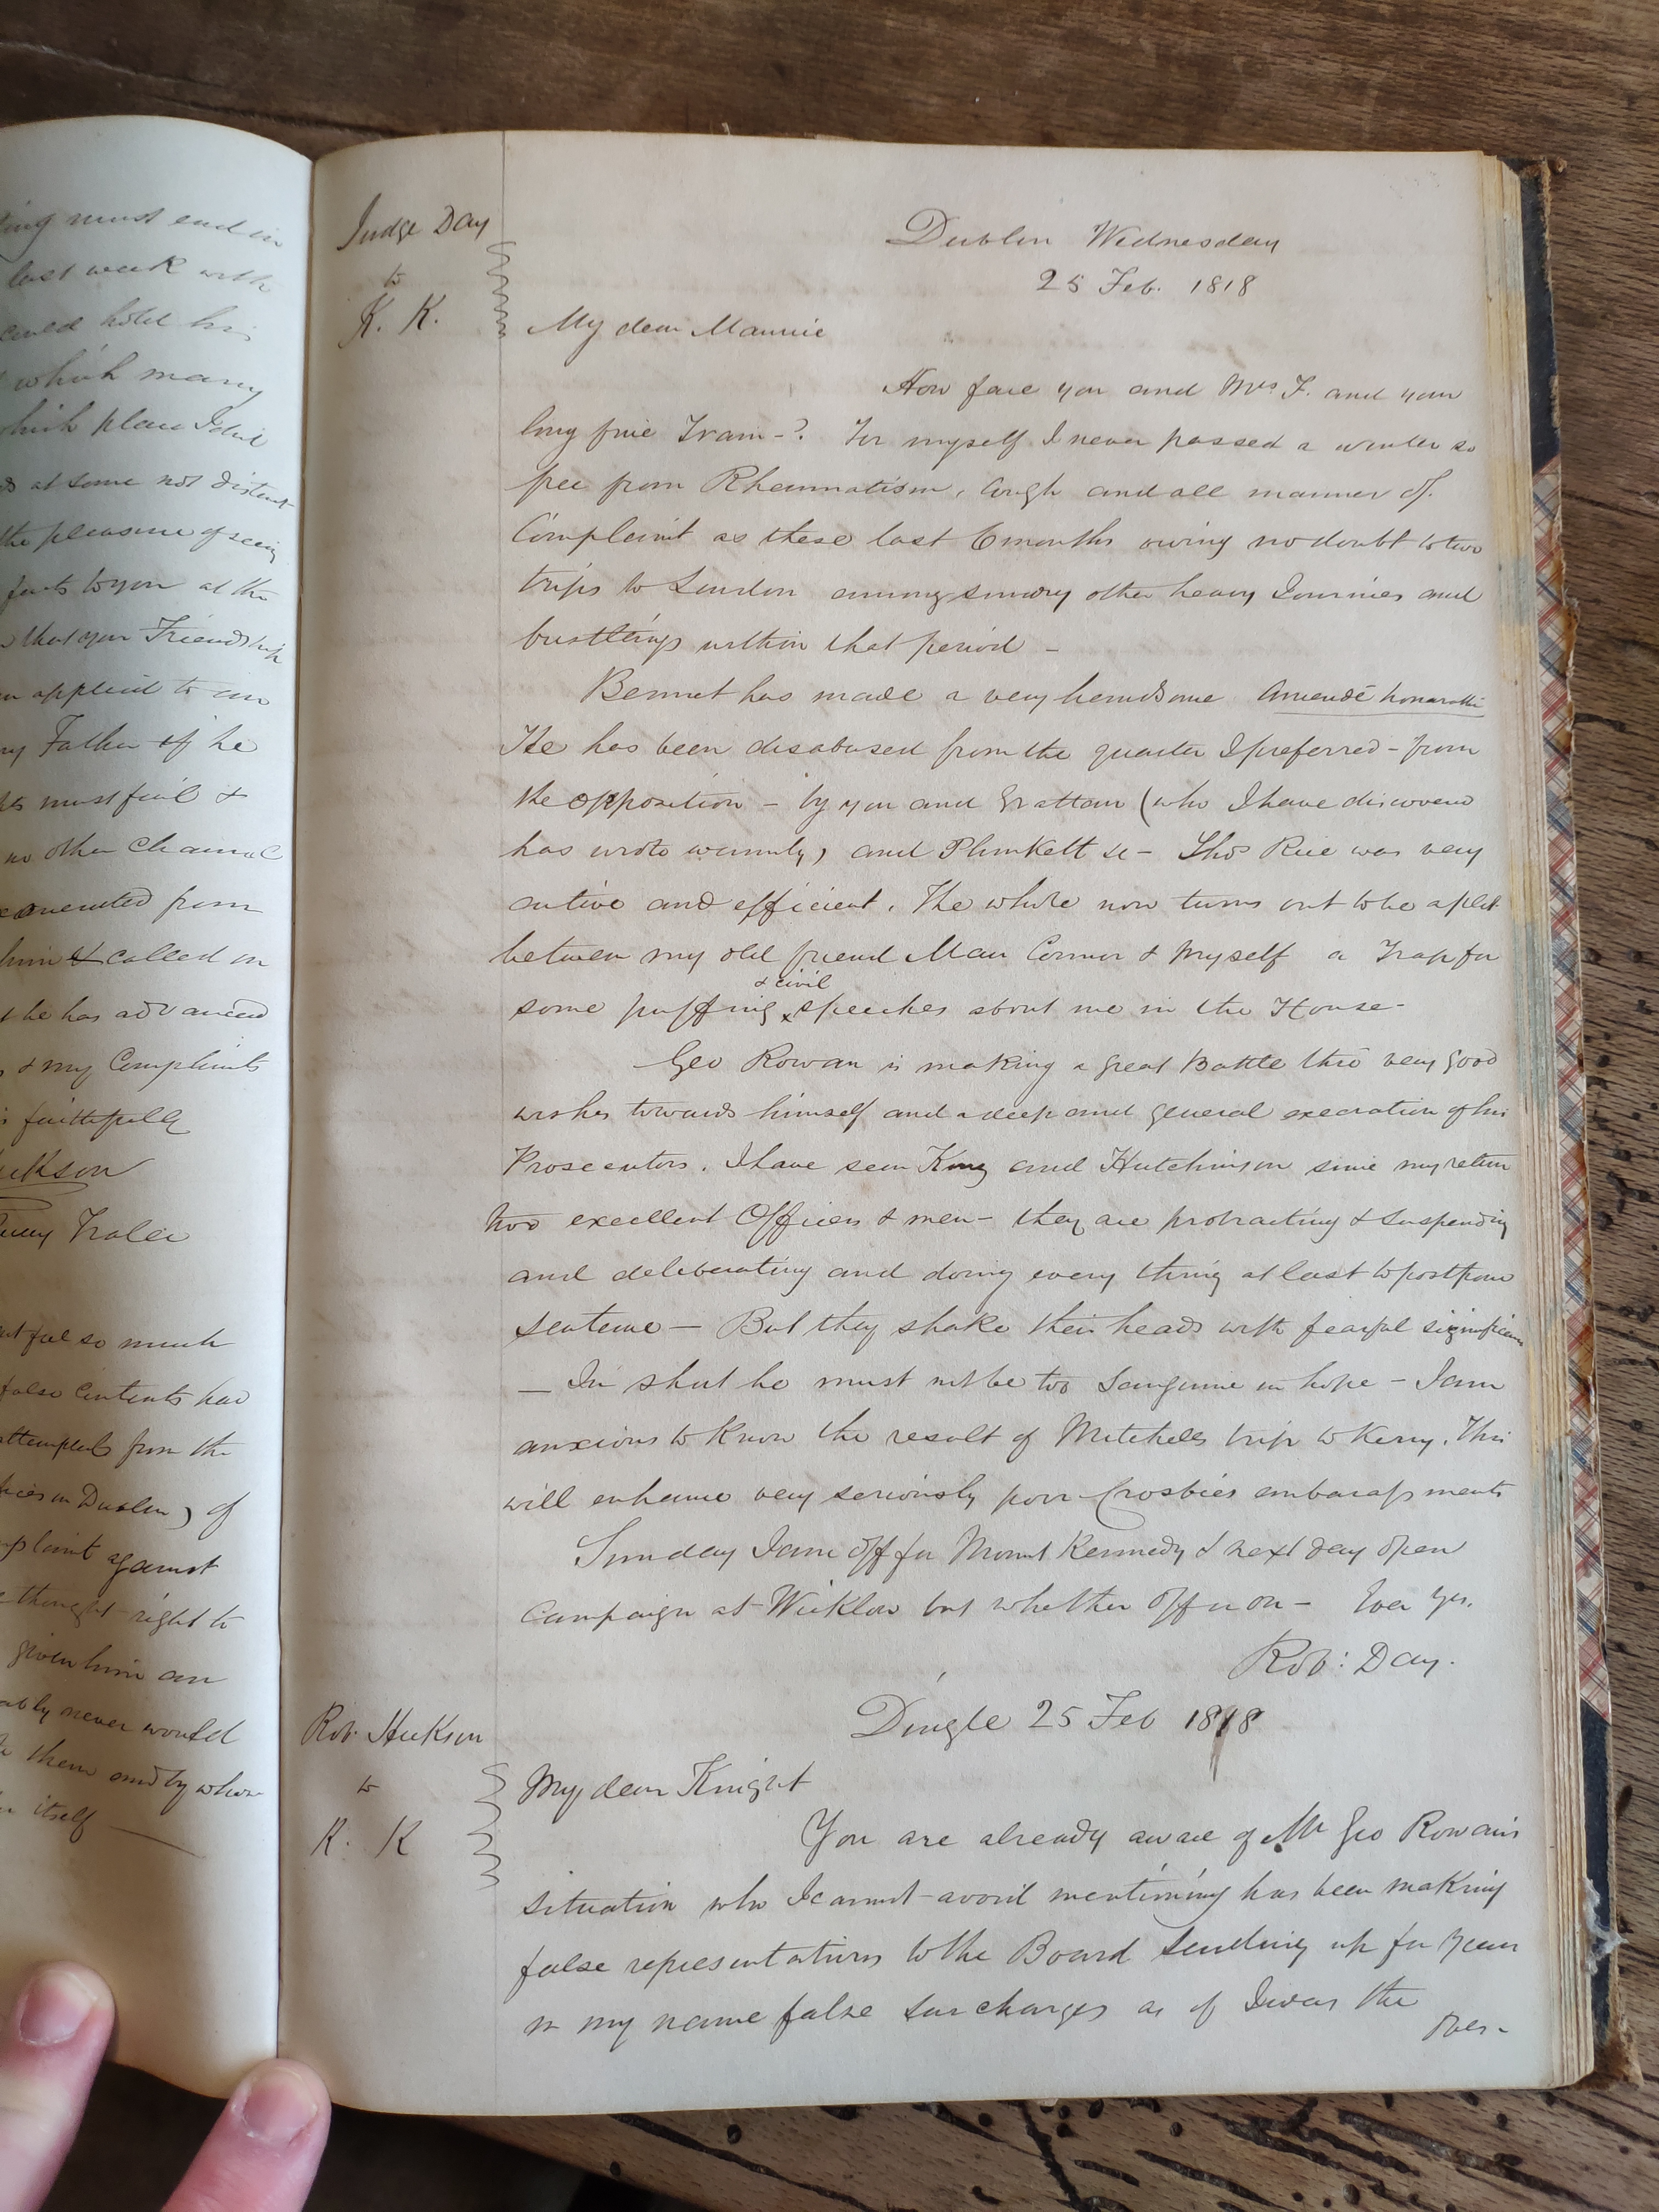 ing must end in
last week with
hotel his
which many
which place I did
as at some not distant
the pleasure of seeing
facts to you at the
that your Friendship
applied to him
my Father if he
must fail &
no other Channel
exonerated from
him & called on
& he has advanced
& my Compliments
faithfully
Hickson
Tralee
feel so much
false Contents had
attempted from the
in Dublin) of
Complaint against
thought right to
given him an
ably never would
them and by whom
itself —
Judge Day
to
K. K.
Dublin Wednesday
25 Feb. 1818
My dear Maurice
How fare you and Mrs. F. and your
long fine Train -? For myself I never passed a winter so
free from Rheumatism, Cough and all manner of
Complaint as these last 6 months owing no doubt to two
trips to London among sundry other heavy Journies and
bustlings within that period -
Bennet has made a very handsome Amende honorable
He has been disabused from the quarter I preferred - from
the opposition - by you and Grattan (who I have discovered
has wrote warmly, and Plunkett &c - Thos Rice was very
active and efficient. The whole now turns out to be a plot
between my old friend Mau Connor & Myself a Trap for
some puffing & civil speeches about me in the House -
Geo Rowan is making a great Battle tho very good
wishes towards himself and a deep and general execration of his
Prosecutors. I have seen King and Hutchinson since my return
two excellent Officers & men - they are protracting & suspending
and deliberating and doing every thing at least to postpone
sentence — But they shake their heads with fearful significance
— In short he must not be too Sanguine in hope - I am
anxious to know the result of Mitchells trip to Kerry. This
will enhance very seriously poor Crosbies embarassments
Sunday I am off for Mount Kennedy & next day open
Campaign at Wicklow but whether off or on - Ever Yrs.
Rob: Day.
Rob. Hickson
to
K. K
Dingle 25 Feb 1818
My dear Knight
You are already aware of Mr Geo Rowan's
situation who I cannot avoid mentioning has been making
false representations to the Board sending up for years
in my name false surcharges as if I was the
over-